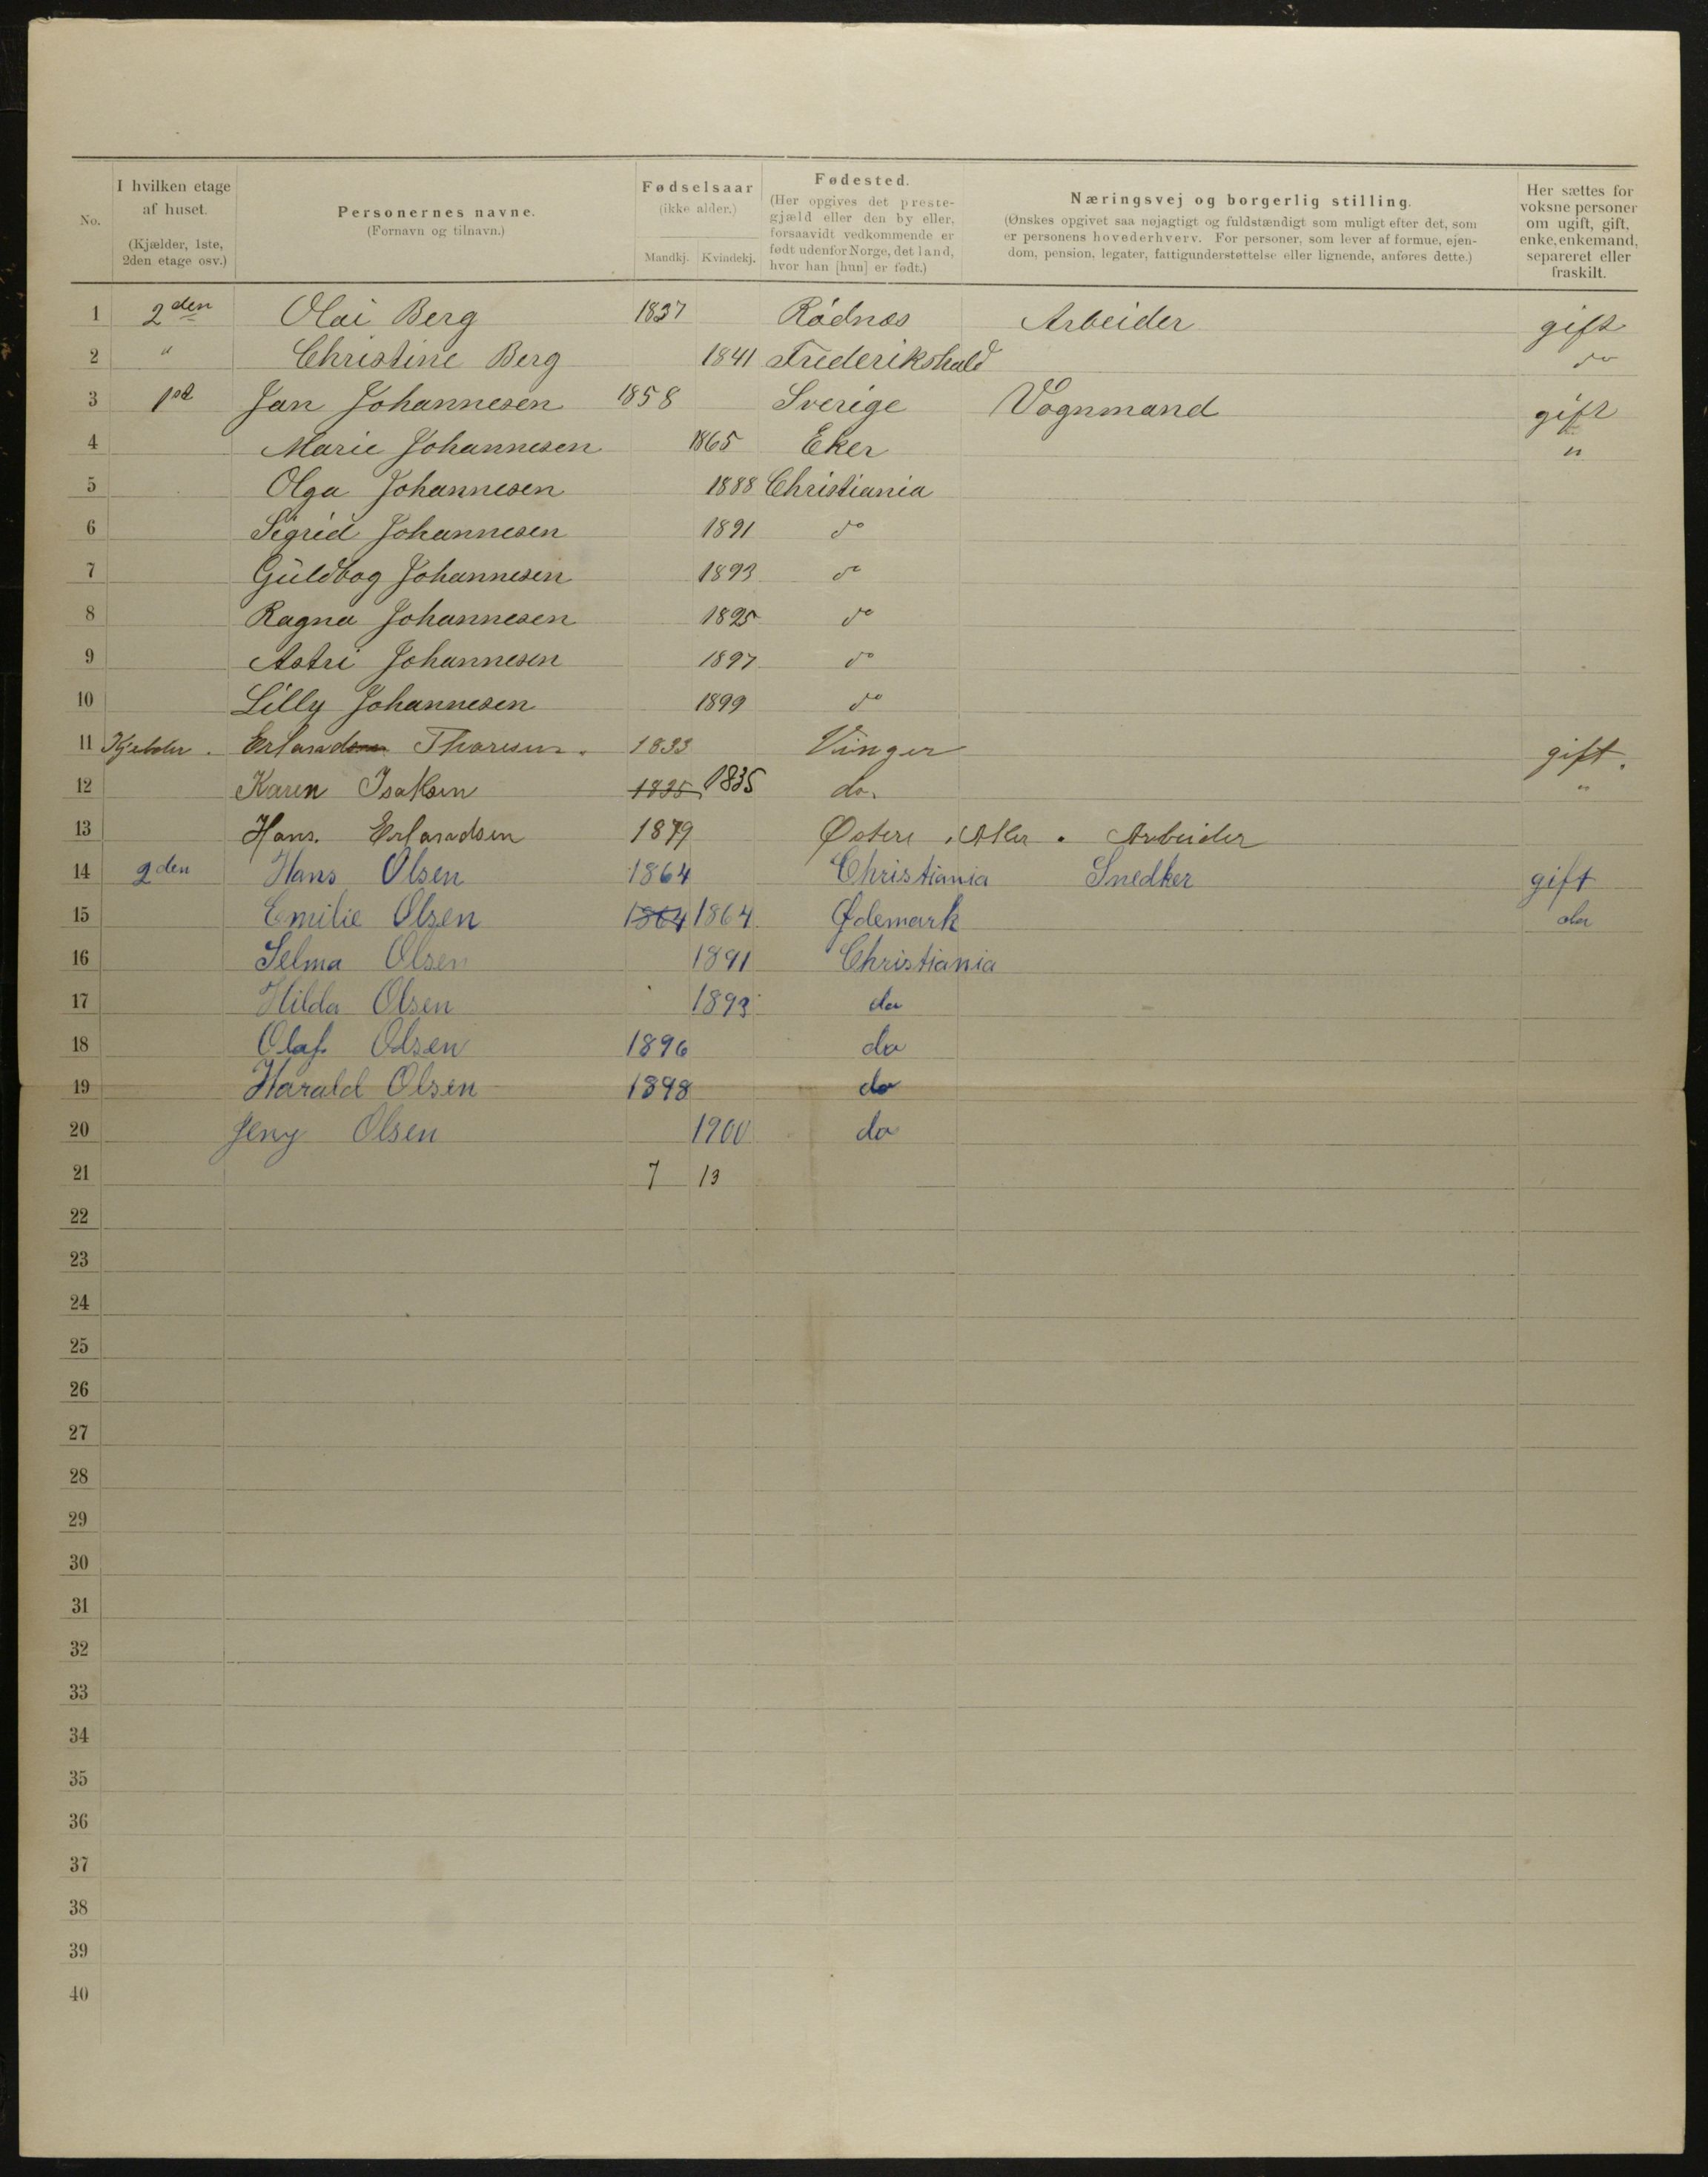 No. I hvilken etage af huset. (Kjælder, 1ste, 2den etage osv.) Personernes navne. (Fornavn og tilnavn.) Fødselsaar (ikke alder.) Mandkj. Kvindekj. Fødested. (Her opgives det prestegjæld eller den by eller, forsaavidt vedkommende er født udenfor Norge, det land, hvor han [hun] er født.) Næringsvej og borgerlig stilling. (Ønskes opgivet saa nøjagtigt og fuldstændigt som muligt efter det, som er personens hovederhverv. For personer, som lever af formue, ejendom, pension, legater, fattigunderstøttelse eller lignende, anføres dette.) Her sættes for voksne personer om ugift, gift, enke, enkemand, separeret eller fraskilt.
1 2den Olai Berg 1837 Rødnæs Arbeider gift
2 " Christine Berg 1841 Frederikshald do
3 1st Jan Johannesen 1858 Sverige Vognmand gift
4 Marie Johannesen 1865 Eker "
5 Olga Johannesen 1888 Christiania
6 Sigrid Johannesen 1891 do
7 Guldbog Johannesen 1893 do
8 Ragna Johannesen 1895 do
9 Astri Johannesen 1897 do
10 Lilly Johannesen 1899 do
11 Kjelder. Erlandsen Thoresen. 1833 Vinger gift.
12 Karen Isaksen 1835 1835 do. "
13 Hans. Erlandsen 1879 Østere Aker. Arbeider
14 2den Hans Olsen 1864 Christiania Snedker gift
15 Emilie Olsen 1864 1864 Ødemark do
16 Selma Olsen 1891 Christiania
17 Hilda Olsen 1893 do
18 Olaf Olsen 1896 do
19 Harald Olsen 1898 do
20 Jeny Olsen 1900 do
21 7 13
22
23
24
25
26
27
28
29
30
31
32
33
34
35
36
37
38
39
40